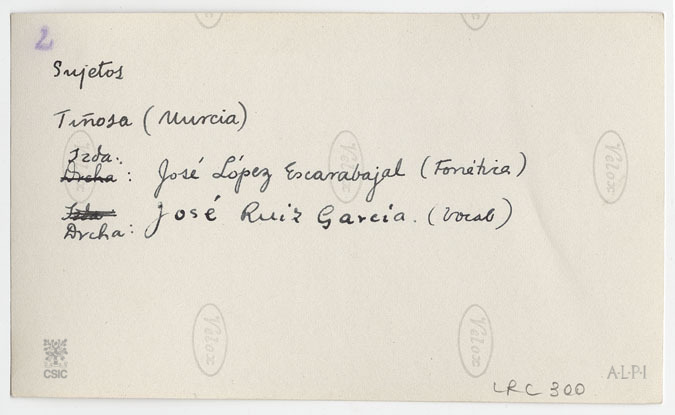 2
Sujetos
Tiñosa (Murcia)
Izda.:
Drcha: José López Escarabajal (Fonética)
Izda: José Ruiz García. (Vocab)
Drcha:
Velox
Velox
Velox
Velox
Velox
CSIC
A·L·P·I
LRC 300